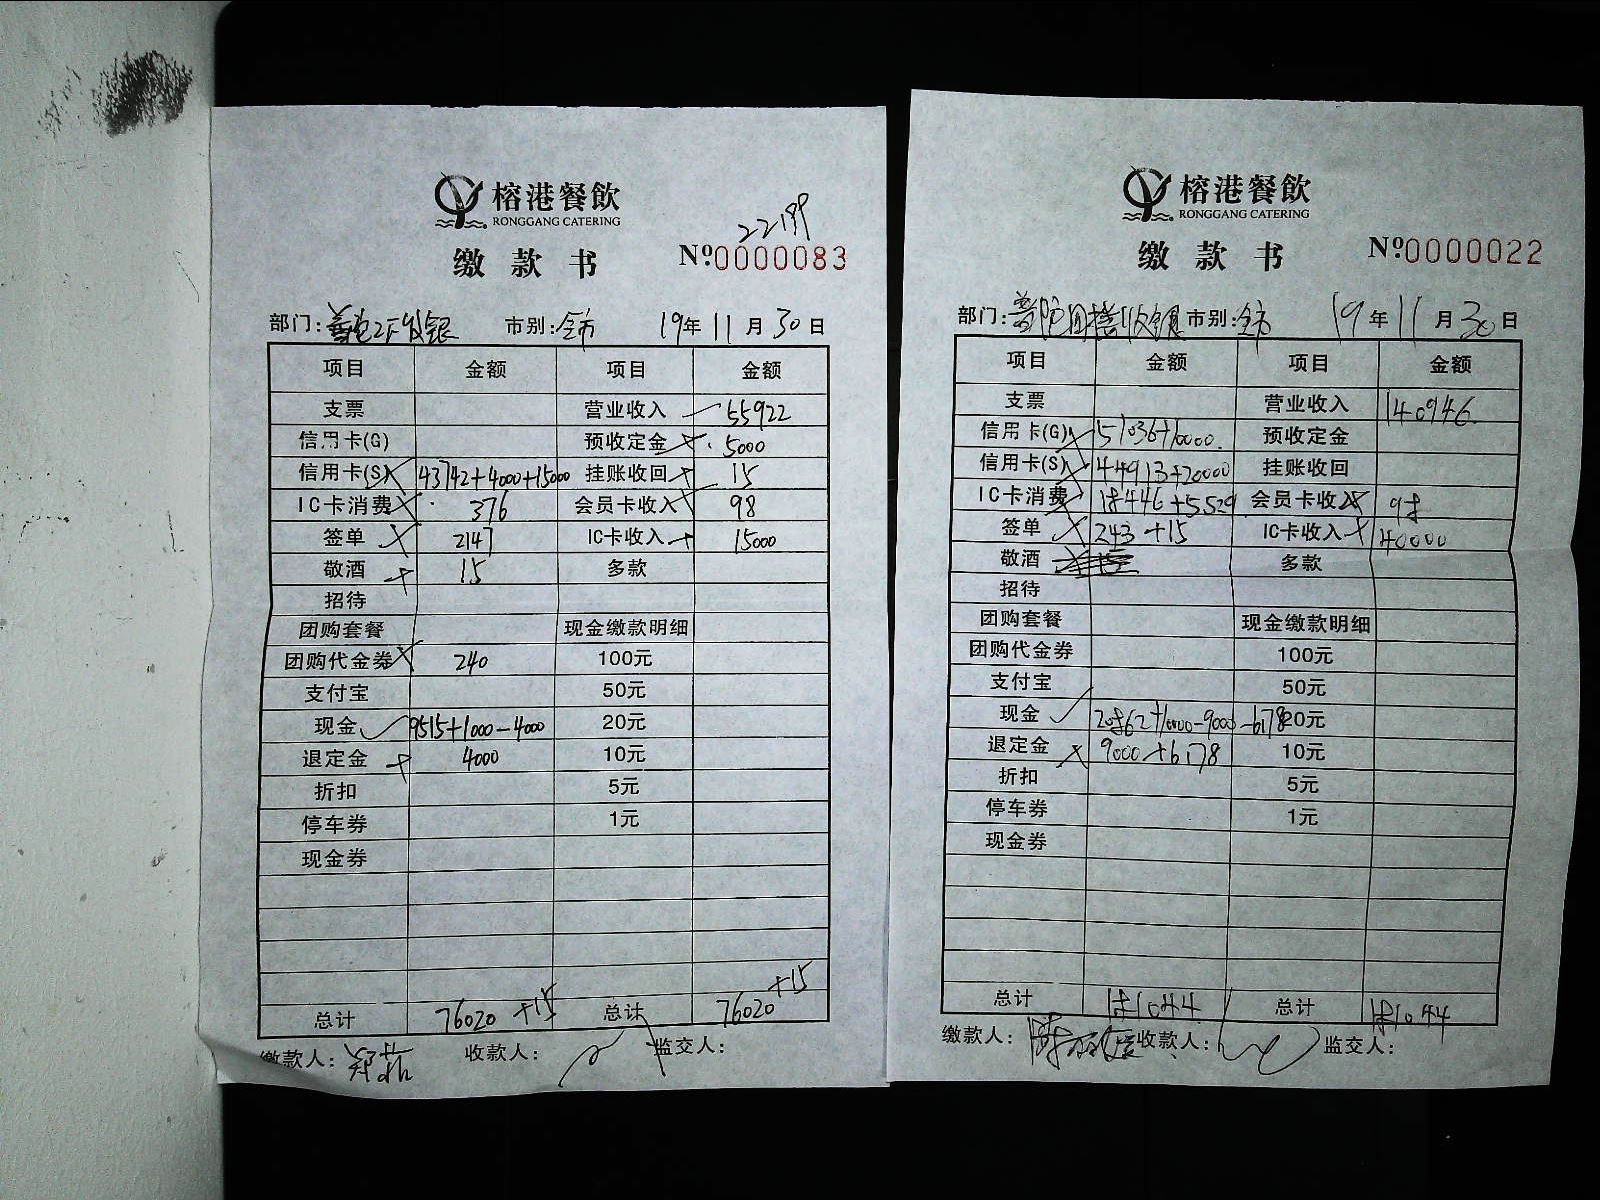 榕港餐飲
RONGGANG CATERING
22199
缴款书
Nº0000083
部门: 2F收银 市别: 全市 19年11月30日
项目 金额 项目 金额
支票 营业收入 55922
信用卡(G) 预收定金 5000
信用卡(S) 43742+4000+15000 挂账收回 15
IC卡消费 376 会员卡收入 98
签单 2147 IC卡收入 15000
敬酒 15 多款
招待
团购套餐 现金缴款明细
团购代金券 240 100元
支付宝 50元
现金 9515+1000-4000 20元
退定金 4000 10元
折扣 5元
停车券 1元
现金券
总计 76020+15 总计 76020+15
缴款人: 收款人: 监交人:
榕港餐飲
RONGGANG CATERING
缴款书
Nº0000022
部门: 收银 市别: 全市 19年11月30日
项目 金额 项目 金额
支票 营业收入 140946
信用卡(G) 51036+10000 预收定金
信用卡(S) 44913+20000 挂账收回
IC卡消费 18446+5529 会员卡收入 98
签单 243+15 IC卡收入 40000
敬酒 多款
招待
团购套餐 现金缴款明细
团购代金券 100元
支付宝 50元
现金 20862+10000-9000-6178 20元
退定金 9000+6178 10元
折扣 5元
停车券 1元
现金券
总计 181044 总计 181044
缴款人: 收款人: 监交人: